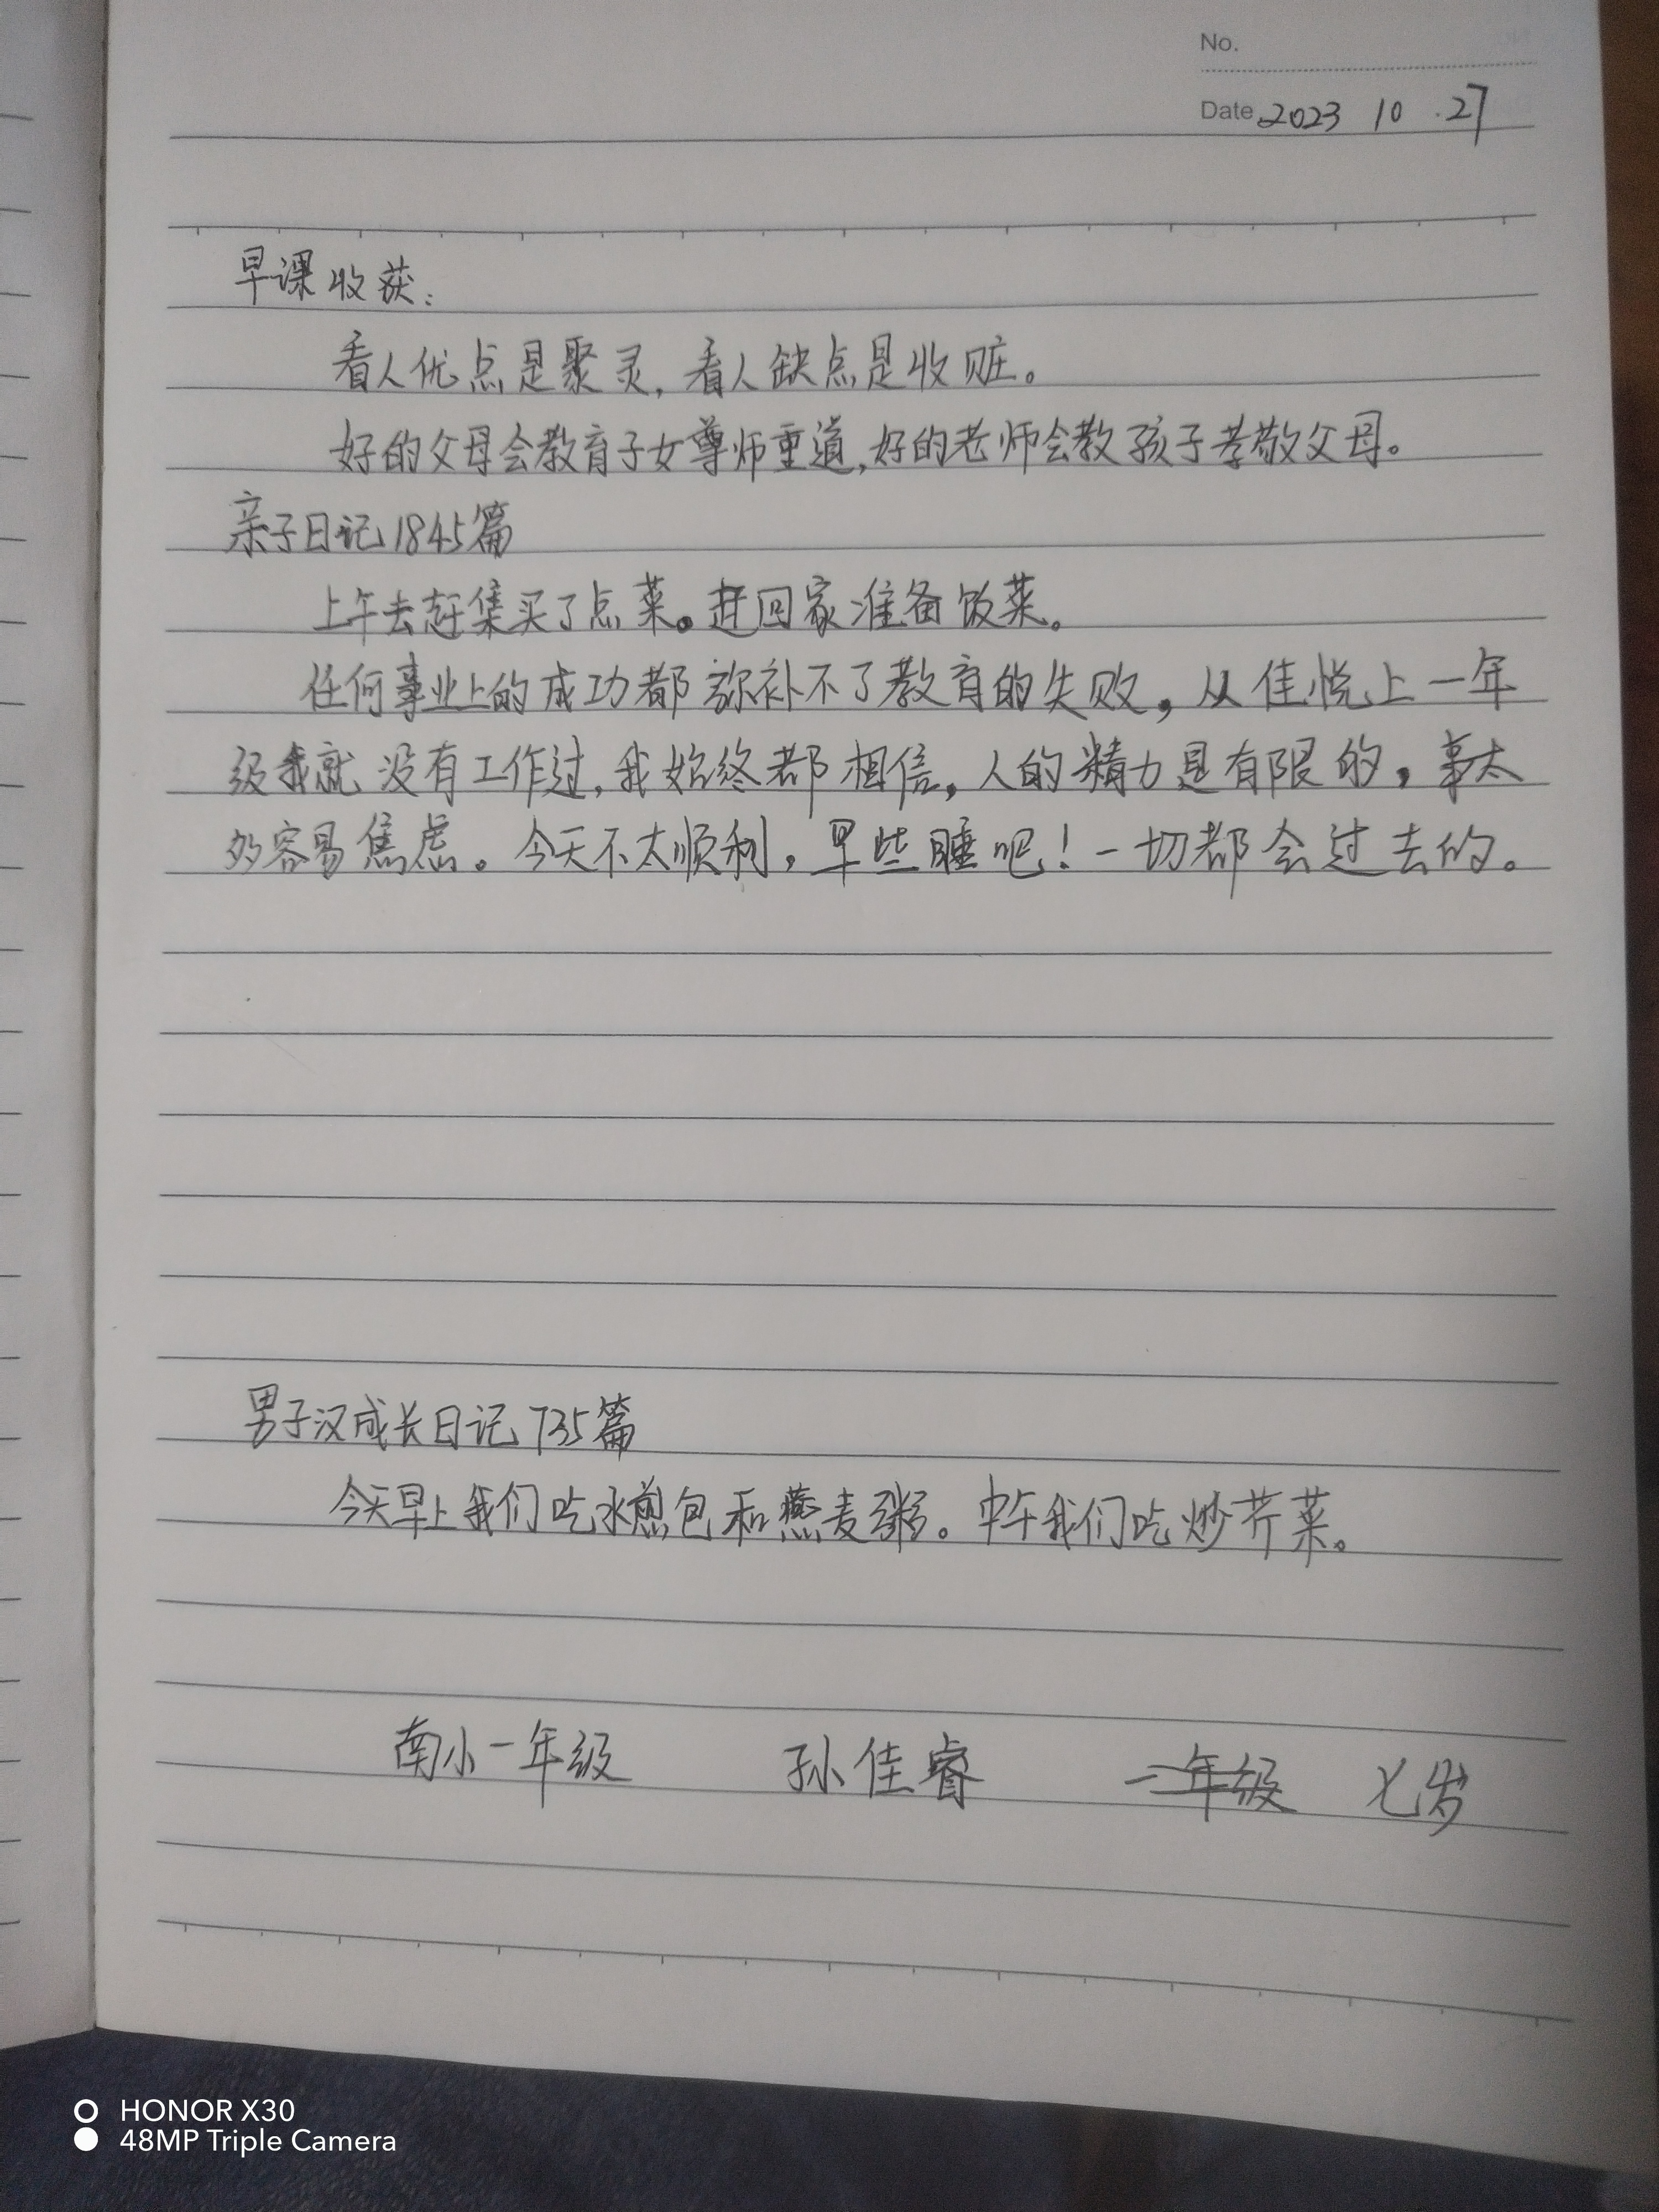 No.
Date 2023 10 .27
早课收获：
看人优点是聚灵，看人缺点是收赃。
好的父母会教育子女尊师重道，好的老师会教孩子孝敬父母。
亲子日记1845篇
上午去赶集买了点菜。赶回家准备饭菜。
任何事业上的成功都弥补不了教育的失败，从佳悦上一年
级我就没有工作过，我始终都相信，人的精力是有限的，事太
多容易焦虑。今天不太顺利，早些睡吧！一切都会过去的。
男子汉成长日记735篇
今天早上我们吃水煎包和燕麦粥。中午我们吃炒芥菜。
南小一年级 孙佳睿 一年级 七岁
HONOR X30
48MP Triple Camera